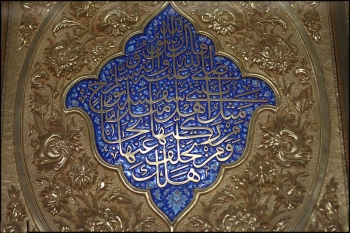 قال رسول الله
صلى الله عليه وآله
مثل اهل بيتي
كسفينة نوح
من ركبها نجا
ومن تخلف عنها
هلك